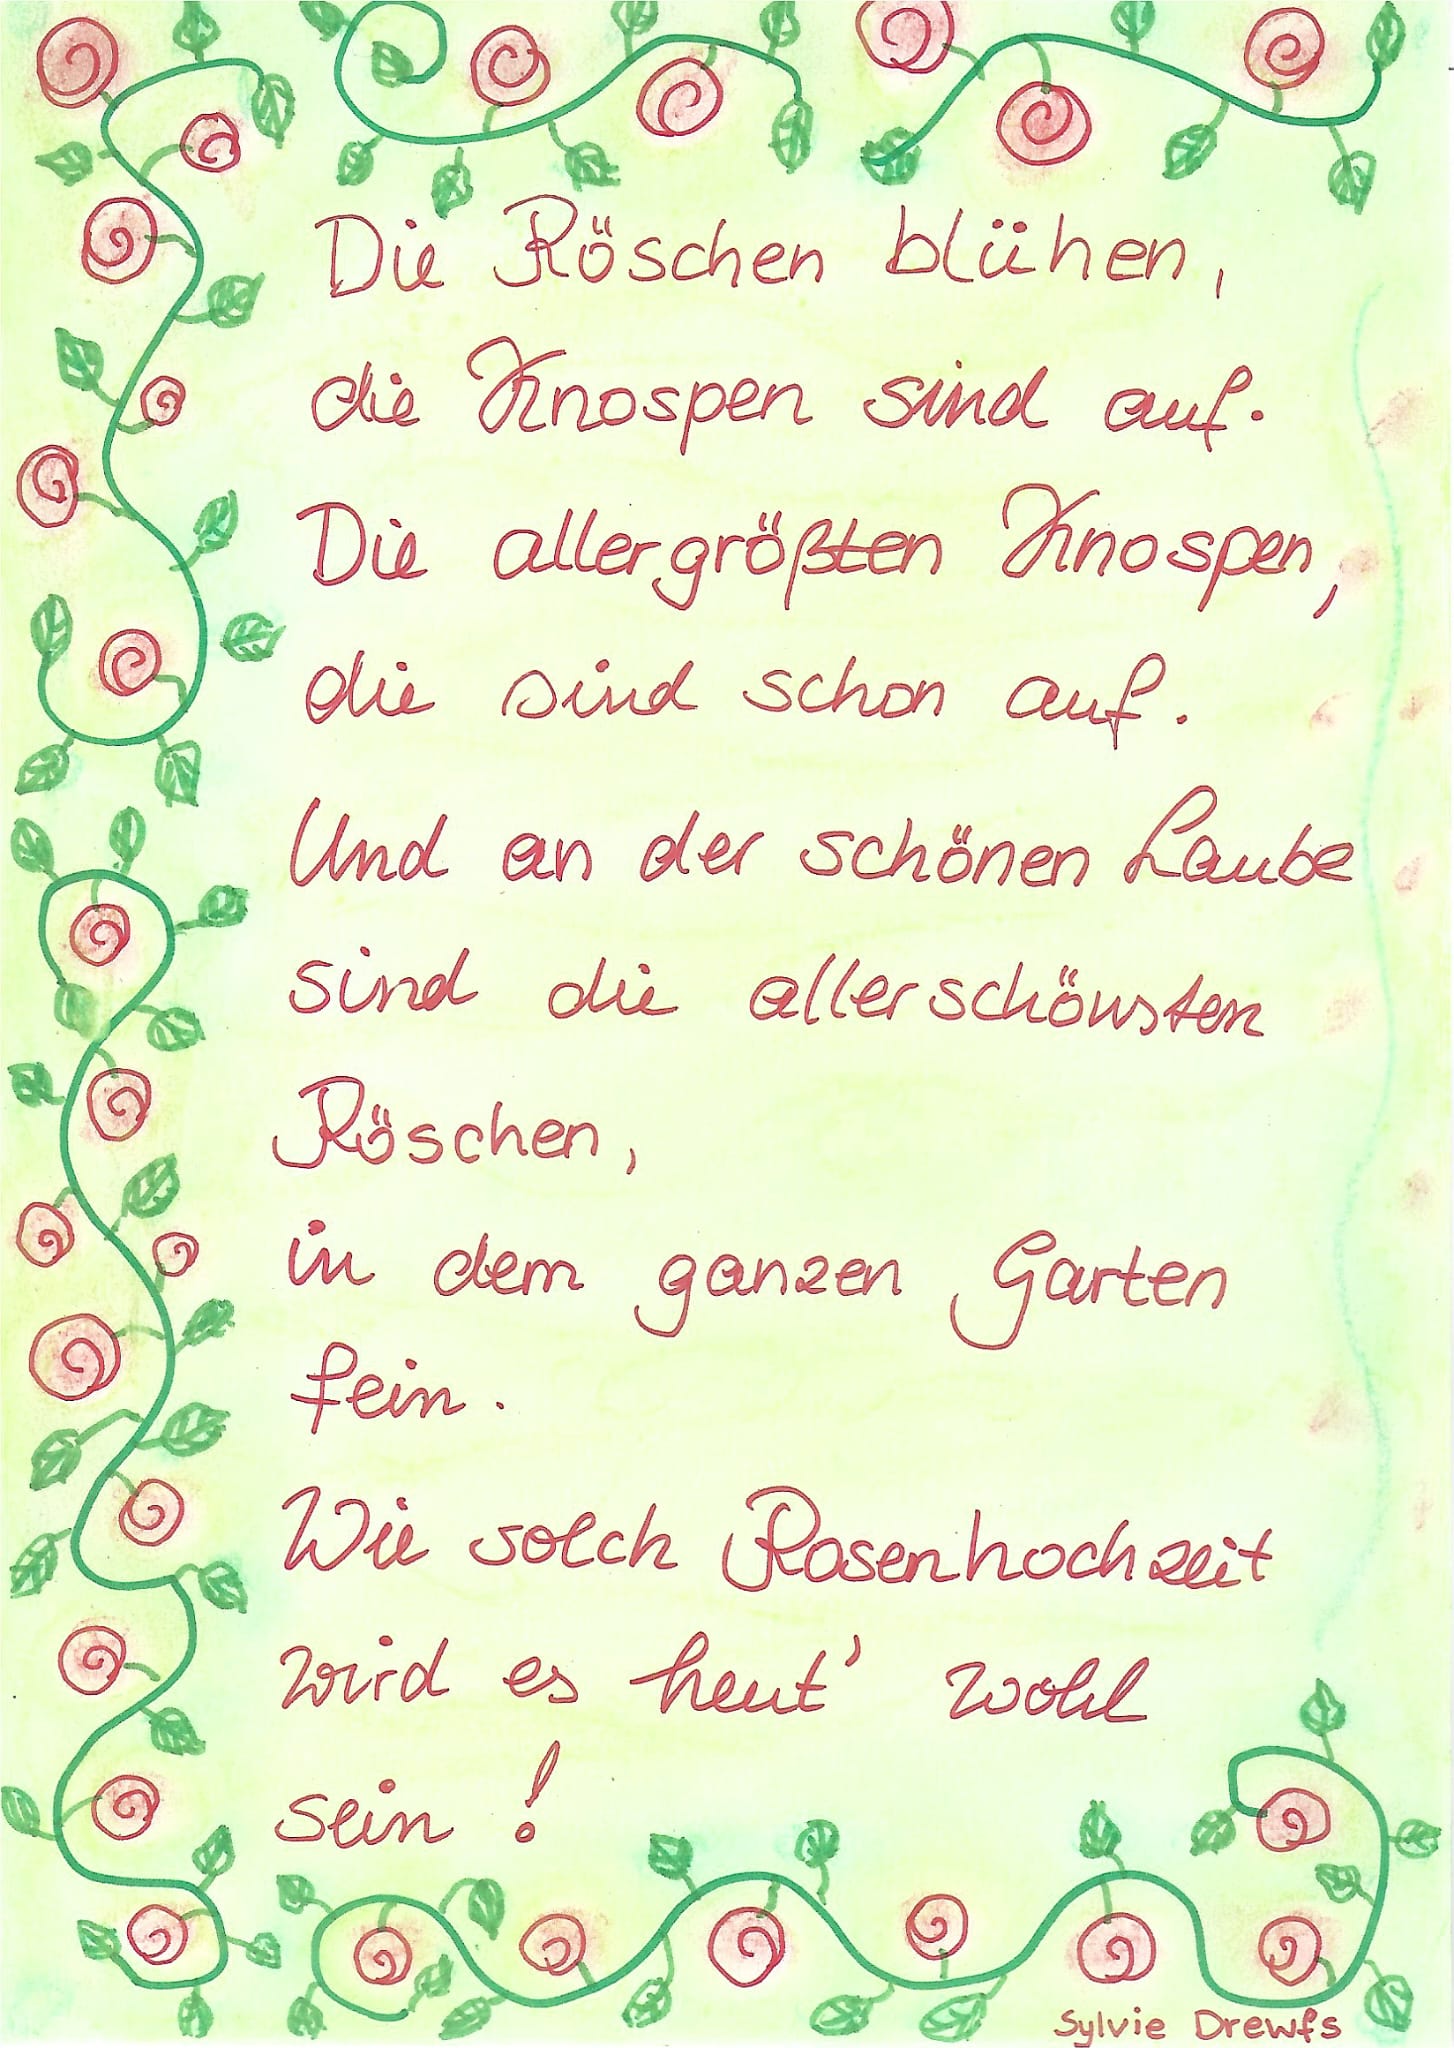 Die Röschen blühen,
die Knospen sind auf.
Die allergrößten Knospen,
die sind schon auf.
Und an der schönen Laube
sind die allerschönsten
Röschen,
in dem ganzen Garten
fein.
Wie solch Rosenhochzeit
wird es heut' wohl
sein!
Sylvie Drewfs